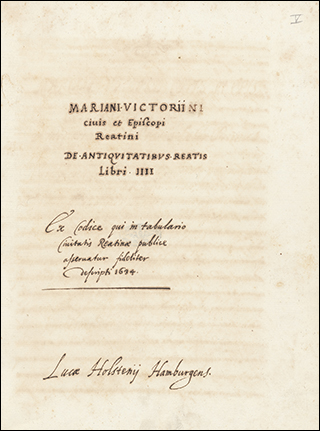 V
MARIANI·VICTORII NI
ciuis et Episcopi
Reatini
DE·ANTIQVITATIBVS·REATIS
Libri·IIII
Ex Codice qui in tabulario
Ciuitatis Reatinæ publice
asseruatur fideliter
descripti 1634.
Lucæ Holstenij Hamburgens.